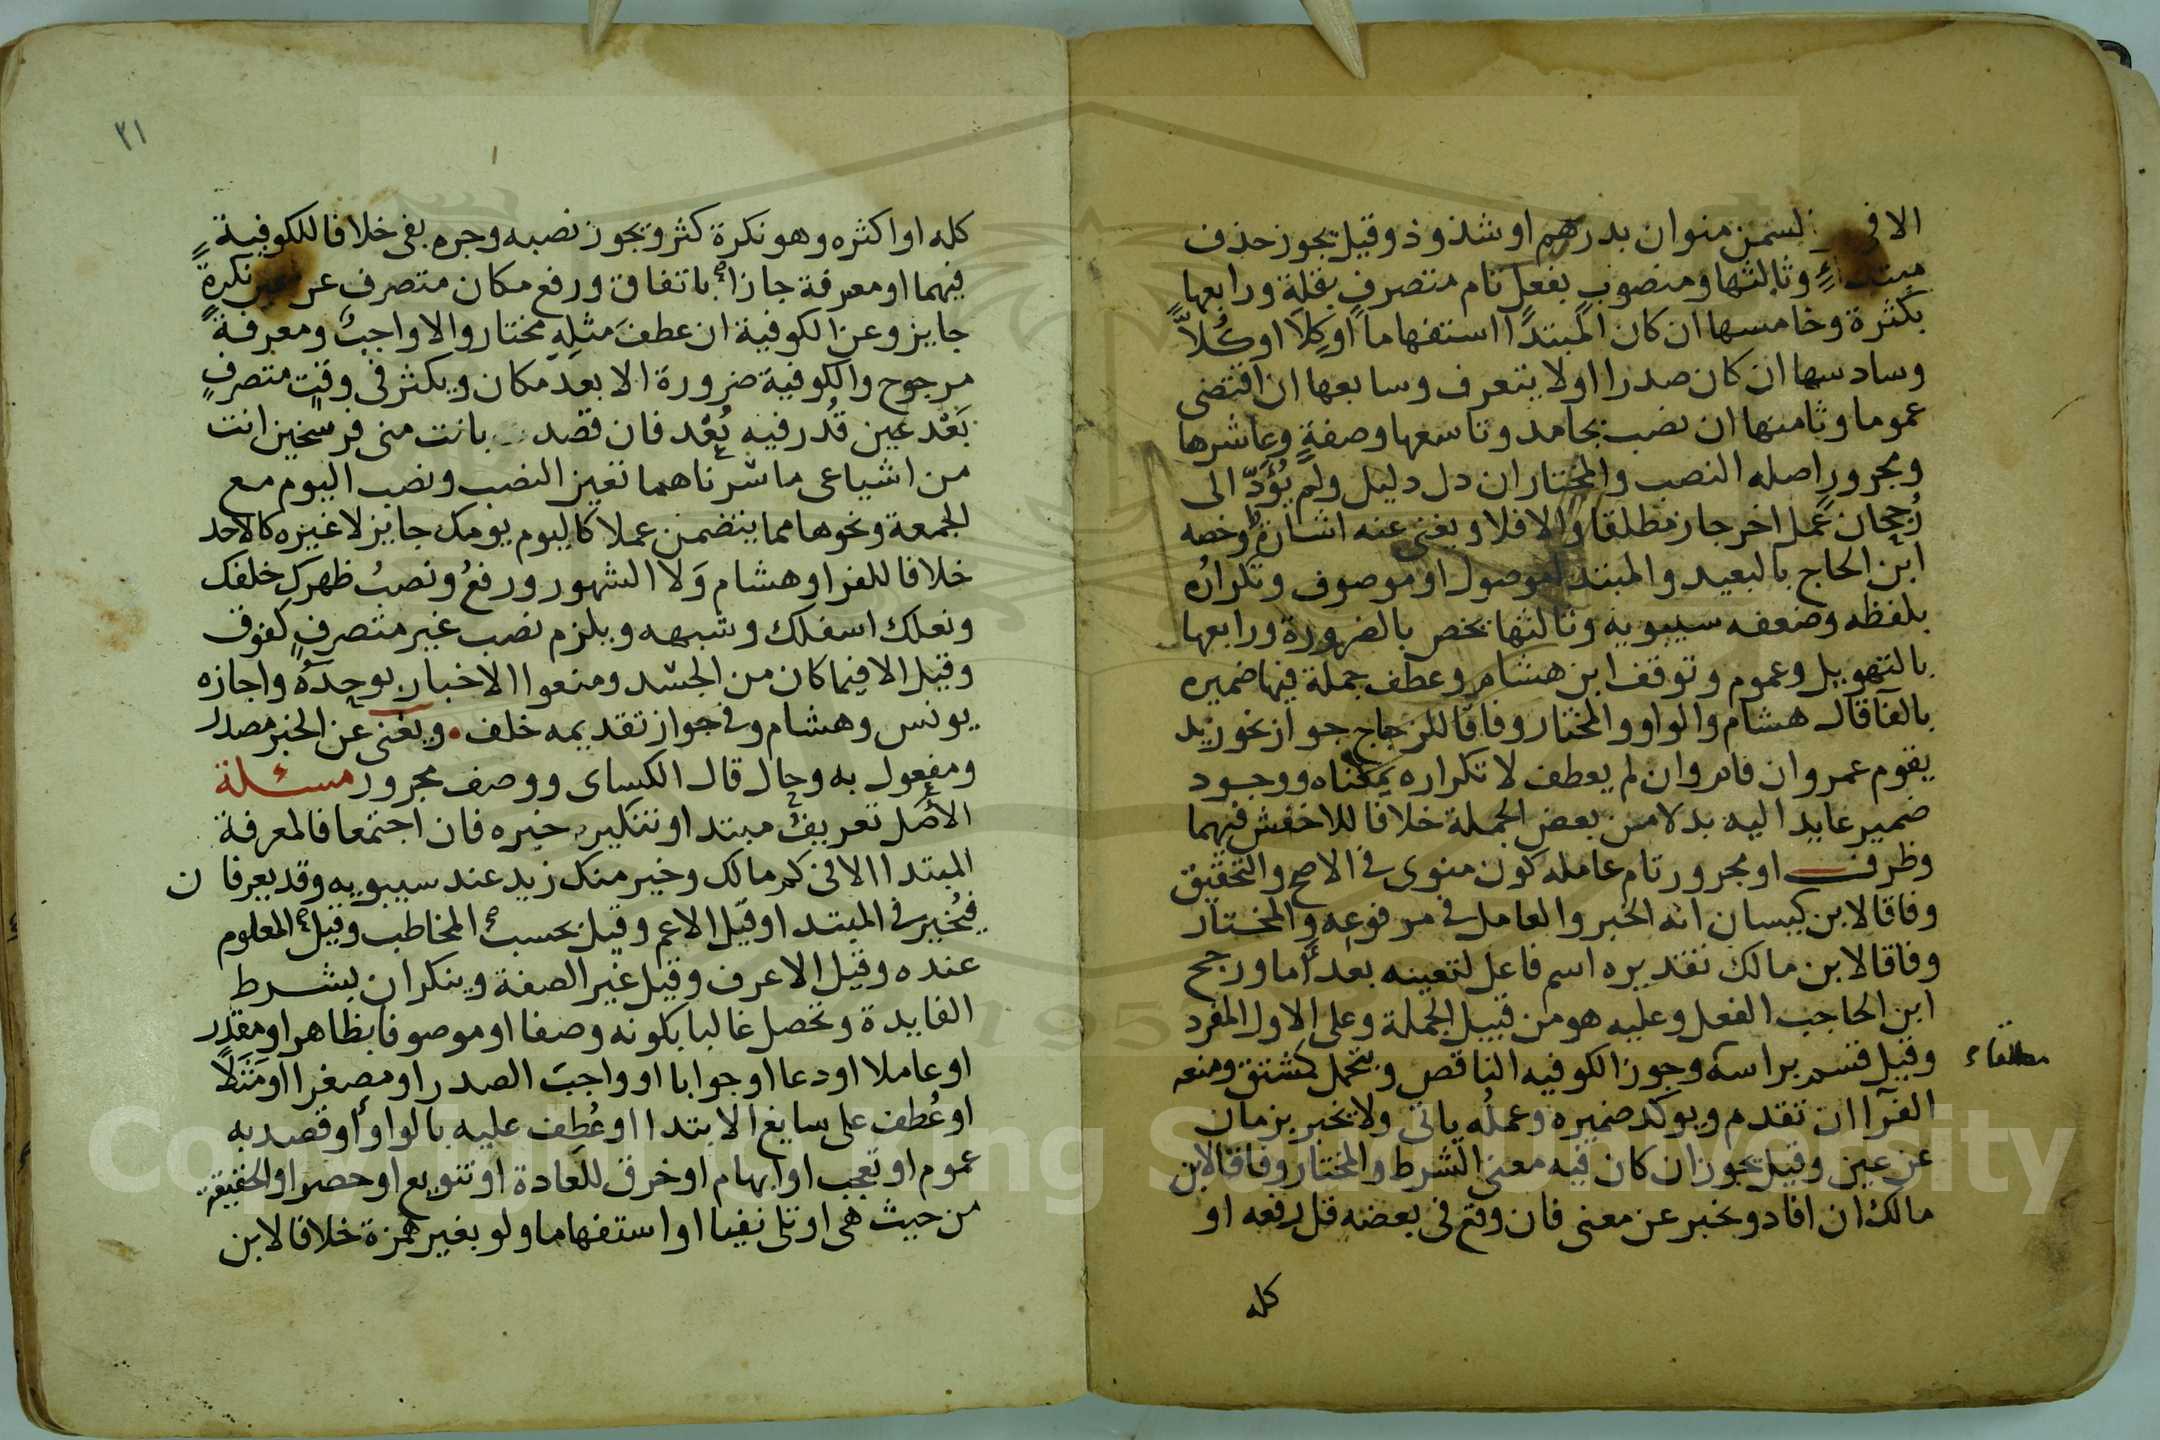 الا في السمن منوان بدرهم او شذوذ وقيل يجوز حذف
مبتداءٍ وثالثها ومنصوبٍ بفعلٍ تام متصرفٍ بقلةٍ ورابعها
بكثرة وخامسها ان كان المبتدا استفهاما او كِلا او كُلاًّ
وسادسها ان كان صدرا اولا يتعرف وسابعها ان اقتضى
عموما وثامنها ان نصب بجامد وتاسعها وصفةٍ وعاشرها
ومجرورٍ اصله النصب والمختار ان دل دليل ولم يُؤَدِّ الى
رُجحان عمل اخر جاز مطلقا والا فلا ويغني عنه اشارة وخصه
ابن الحاج بالبعيد والمبتدا موصول او موصوف وتكرارُه
بلفظه وضعفه سيبويه وثالثها يختص بالضرورة ورابعها
بالتهويل وعموم وتوقف ابن هشام وعطف جملة فيها ضميره
بالفآ قال هشام والواو والمختار وفاقا للزجاج جواز نحو زيد
يقوم عمرو ان قام وان لم يعطف لا تكراره بمعناه ووجود
ضمير عايد اليه بدلا من بعض الجملة خلافا للاخفش فيهما
وظرف او مجرور تام عامله كون منوى في الاصح والتحقيق
وفاقا لابن كيسان انه الخبر والعامل في مرفوعه والمختار
وفاقا لابن مالك تقديره اسم فاعل لتعينه بعد اما ورجح
ابن الحاجب الفعل وعليه هو من قبيل الجملة وعلى الاول المفرد
وقيل قسم براسه وجوز الكوفيه الناقص ويتحمل كمشتق ومنعه
مطلقا
الفرآ ان تقدم ويوكد ضميره وعمله ياتى ولا يخبر بزمان
عن عين وقيل يجوز ان كان فيه معنى الشرط والمختار وفاقا لابن
مالك ان افاد ويخبر عن معنى فان وقع في بعضه قل رفعه او
كله
٢١
كله او اكثره وهو نكرة كثر ويجوز نصبه وجره بفى خلافا للكوفية
فيهما او معرفة جازا باتفاق ورفع مكان متصرف عن عين نكرةٍ
جايز وعن الكوفية ان عطف مثله مختار والا واجبٌ ومعرفة
مرجوح والكوفية ضرورة الا بعد مكان ويكثر في وقتٍ متصرفٍ
بَعْد عين قُدر فيه بُعْد فان قصد بانت منى فرسخين انت
من اشياعى ما سرناهما تعين النصب ونصب اليوم مع
الجمعة ونحوها مما يتضمن عملا كاليوم يومك جايز لا غيره كالاحد
خلافا للفرا وهشام وَلا الشهور ورفعُ ونصبُ ظهرك خلفك
ونعلك اسفلك وشبهه ويلزم نصب غير متصرفٍ كفوق
وقيل الا فيما كان من الجسد ومنعوا الاخبار بوحدَهُ واجازه
يونس وهشام وفي جواز تقديمه خلف ويغنى عن الخبر مصدر
ومفعول به وحال قال الكساى ووصف مجرور مسئلة
الاصل تعريف مبتدا وتنكير خبره فان اجتمعا فالمعرفة
المبتدا الا في كم مالك وخير منك زيد عند سيبويه وقد يعرفان
فيُخير في المبتدا وقيل الاعم وقيل بحسب المخاطب وقيل المعلوم
عنده وقيل الاعرف وقيل غير الصفة وينكران بشرط
الفايدة وتحصل غالبا بكونه وصفا او موصوفا بظاهر او مقدر
او عاملا او دعا او جوابا او واجب الصدر او مصغرا او مَثَلاً
او عُطف على سايغ الابتدا او عُطِف عليه بالواو او قصد به
عموم او تعجب او ابهام او خرق للعادة او تنويع او حصر او الحقيقة
من حيث هى او تلى نفيا او استفهاما ولو بغير همزة خلافا لابن